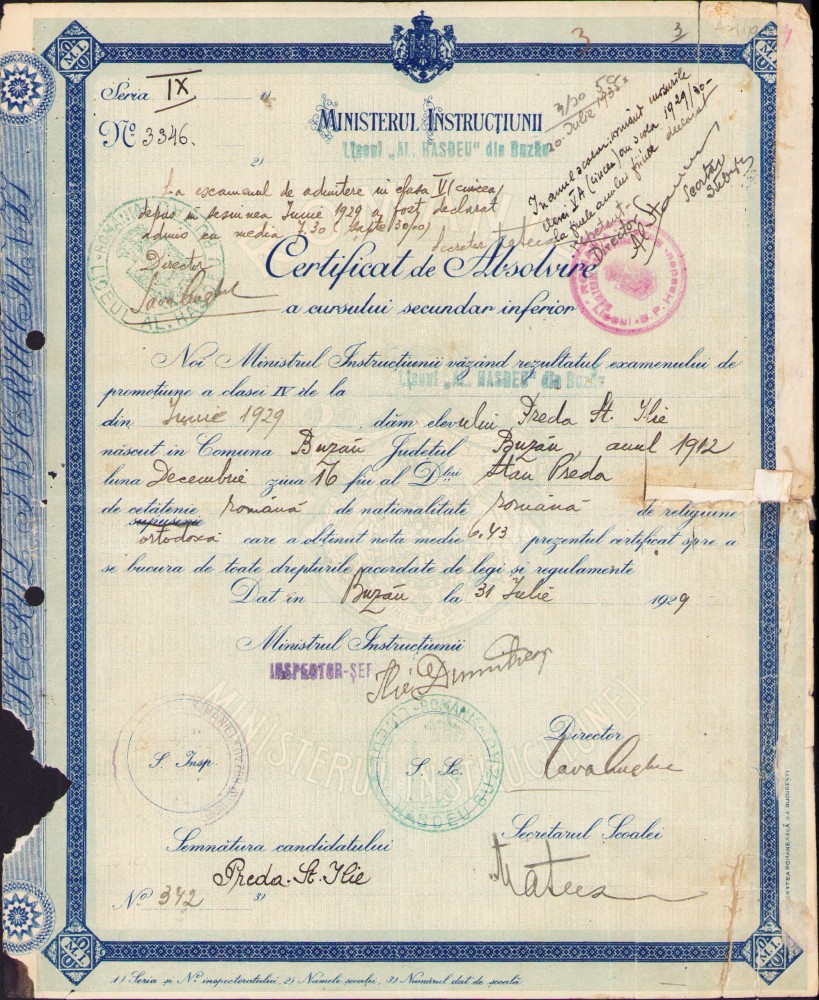 3
3
Seria IX
No. 3346.
MINISTERUL INSTRUCȚIUNII
Liceul „AL. HASDEU" din Buzău
2)
La examenul de admitere in clasa V (cincea)
depus in sesiunea Iunie 1929 a fost declarat
admis cu media 7.30 (șapte 30/00)
Director
Secretar
20 Iulie 1935
In anul școlar
clasei V A (cincea) an școla 1929/30
la finele anului fiind declarat
Repetent
Director
Secretar
Certificat de Absolvire
a cursului secundar inferior
Noi Ministrul Instrucțiunii văzând rezultatul examenului de
Liceul „AL. HASDEU" din Buzău
promoțiune a clasei IV de la
din Iunie 1929 dăm elevului Preda St. Ilie
născut în Comuna Buzău Județul Buzău, anul 1912
luna Decembrie ziua 16 fiu al Dlui Stan Preda
de cetățenie română de naționalitate română de religiune
supușenie
ortodoxă care a obținut nota medie 6,43 prezentul certificat spre a
se bucura de toate drepturile acordate de legi și regulamente
Dat în Buzău la 31 Iulie 1929
Ministrul Instrucțiunii
INSPECTOR-ȘEF
Ilie Dumitrescu
S. Insp.
S. Sc.
Director
MINISTERUL INSTRUCȚIUNEI
Semnătura candidatului
Secretarul Școalei
Preda St. Ilie
Mateescu
No 342
3)
1) Seria și No. inspectoratului, 2) Numele școalei, 3) Numărul dat de școală
M. I.
M. I.
M. I.
M. I.